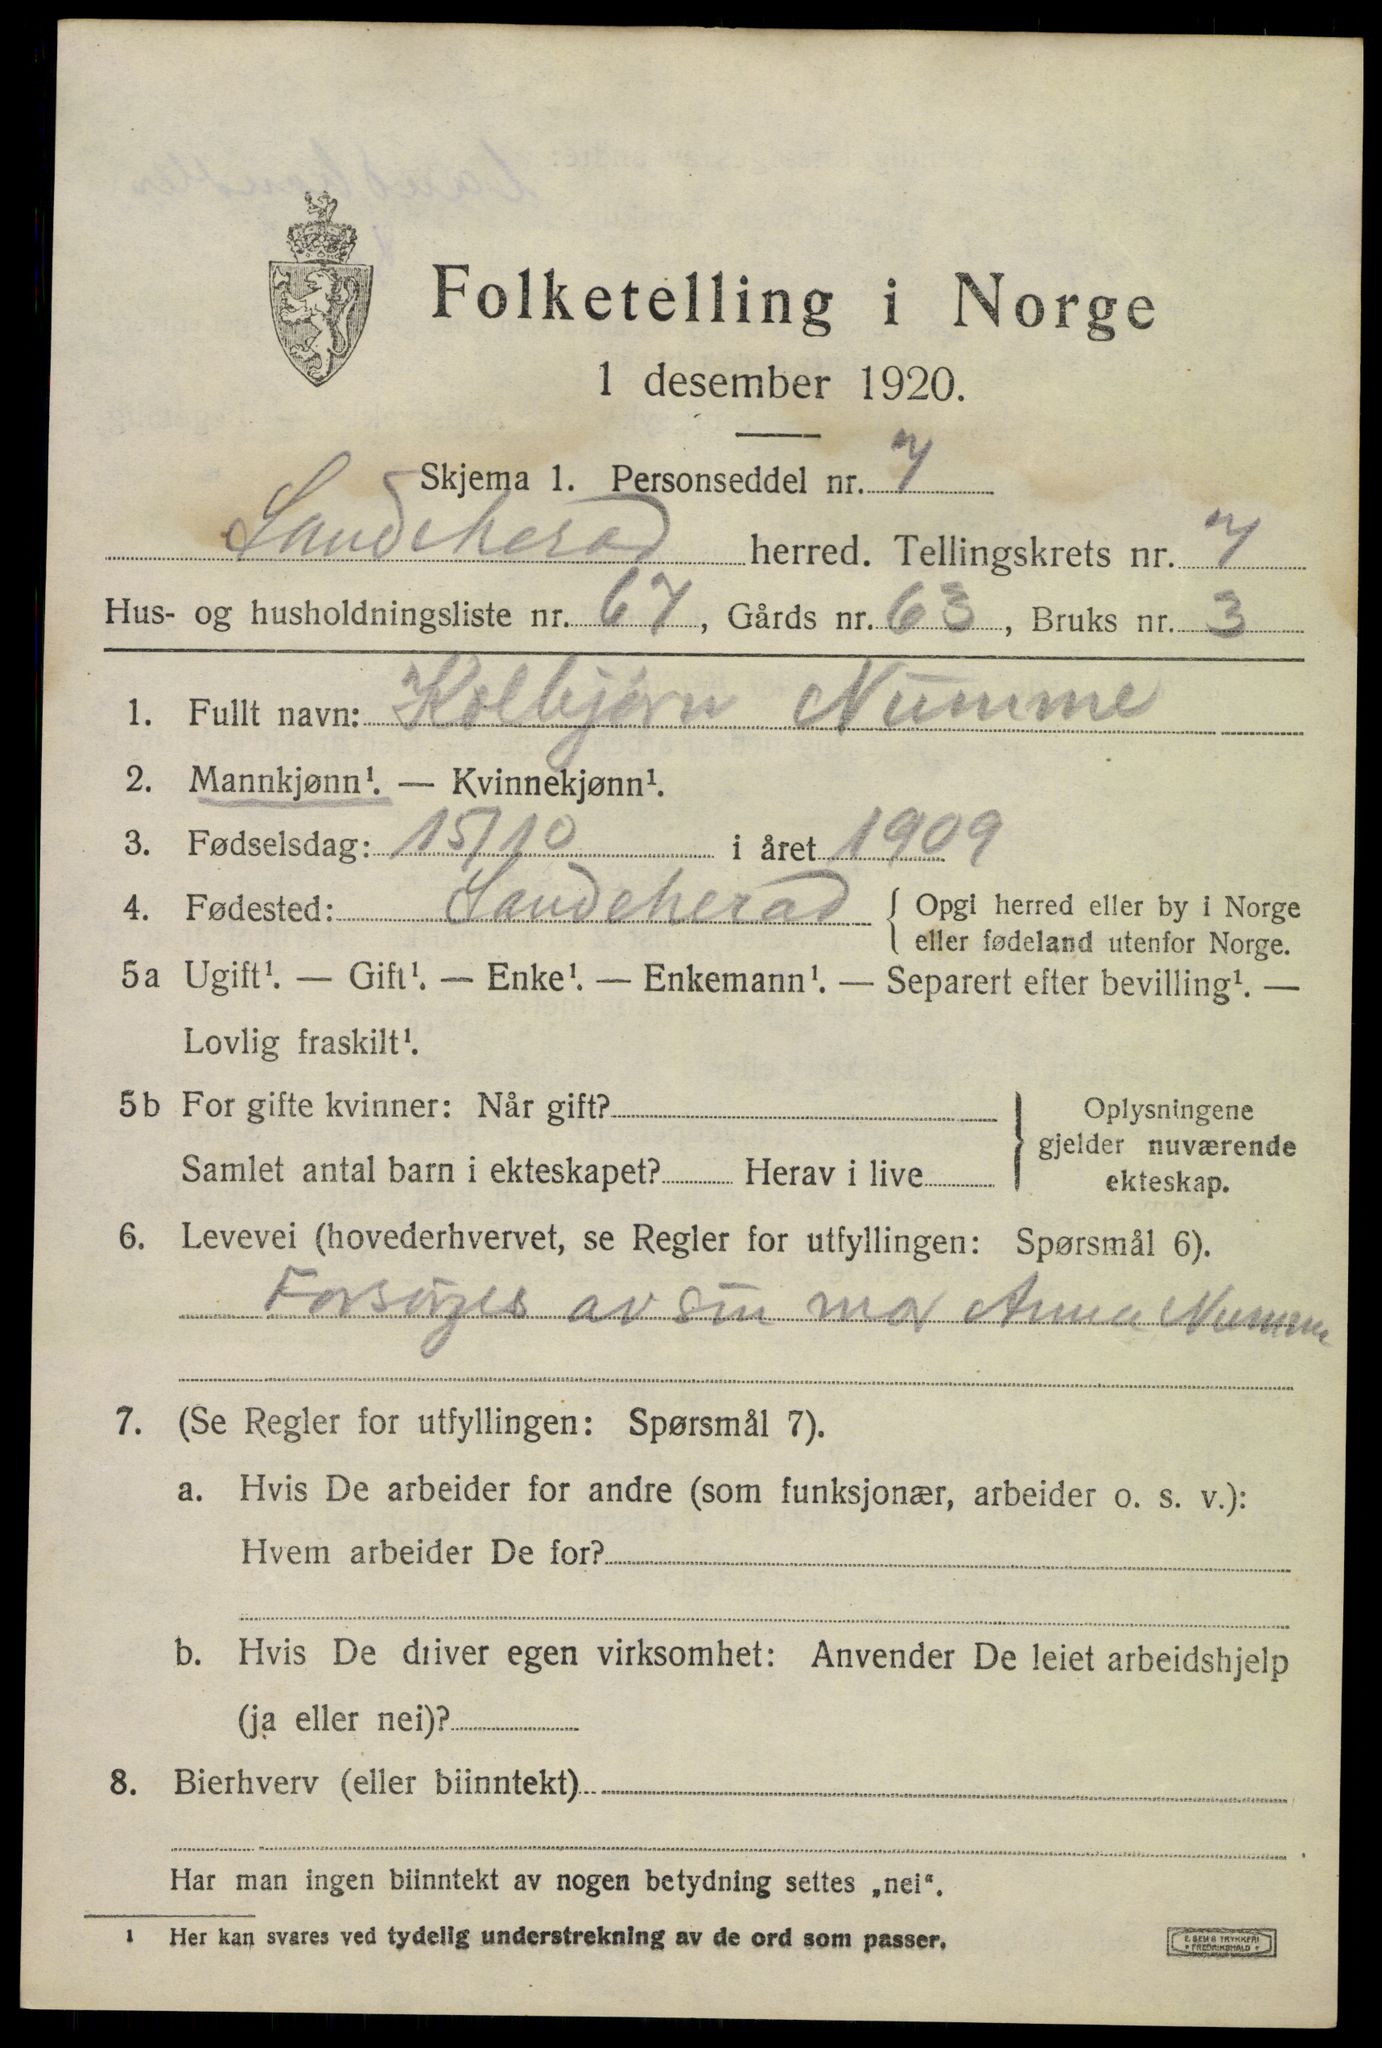 Folketelling i Norge
1 desember 1920.
Skjema 1. Personseddel nr. 7
Sandeherad herred. Tellingskrets nr. 7
Hus- og husholdningsliste nr. 67, Gårds nr. 63, Bruks nr. 3
1. Fullt navn: Kolbjørn Numme
2. Mannkjønn¹. — Kvinnekjønn¹.
3. Fødselsdag: 15/10 i året 1909
4. Fødested: Sandeherad { Opgi herred eller by i Norge
eller fødeland utenfor Norge.
5a Ugift¹. — Gift¹. — Enke¹. — Enkemann¹. — Separert efter bevilling¹. —
Lovlig fraskilt¹.
5b For gifte kvinner: Når gift? } Oplysningene
gjelder nuværende
Samlet antal barn i ekteskapet? Herav i live ekteskap.
6. Levevei (hovederhvervet, se Regler for utfyllingen: Spørsmål 6).
Forsörges av sin mor Anna Numme
7. (Se Regler for utfyllingen: Spørsmål 7).
a. Hvis De arbeider for andre (som funksjonær, arbeider o. s. v.):
Hvem arbeider De for?
b. Hvis De driver egen virksomhet: Anvender De leiet arbeidshjelp
(ja eller nei)?
8. Bierhverv (eller biinntekt)
Har man ingen biinntekt av nogen betydning settes „nei“.
¹ Her kan svares ved tydelig understrekning av de ord som passer.
E. SEM'S TRYKKERI
FREDRIKSHALD